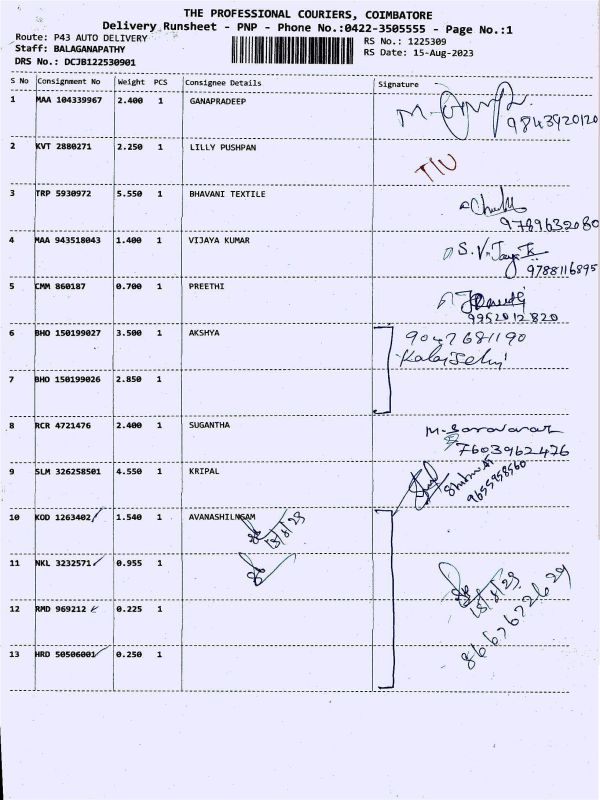 THE PROFESSIONAL COURIERS, COIMBATORE
Delivery Runsheet - PNP - Phone No.:0422-3505555 - Page No.:1
Route: P43 AUTO DELIVERY
Staff: BALAGANAPATHY
DRS No.: DCJB122530901
RS No.: 1225309
RS Date: 15-Aug-2023
S No Consignment No Weight PCS Consignee Details Signature
1 MAA 104339967 2.400 1 GANAPRADEEP
9843920120
2 KVT 2880271 2.250 1 LILLY PUSHPAN
3 TRP 5930972 5.550 1 BHAVANI TEXTILE
9789632080
4 MAA 943518043 1.400 1 VIJAYA KUMAR
9788116895
5 CMM 860187 0.700 1 PREETHI
9952012820
6 BHO 150199027 3.500 1 AKSHYA
9047681190
7 BHO 150199026 2.850 1
8 RCR 4721476 2.400 1 SUGANTHA
7603962476
9 SLM 326258501 4.550 1 KRIPAL
9655958560
10 KOD 1263402 1.540 1 AVANASHILNGAM
15/8/23
11 NKL 3232571 0.955 1
15/8/23
12 RMD 969212 0.225 1
8667672629
13 HRD 50506001 0.250 1